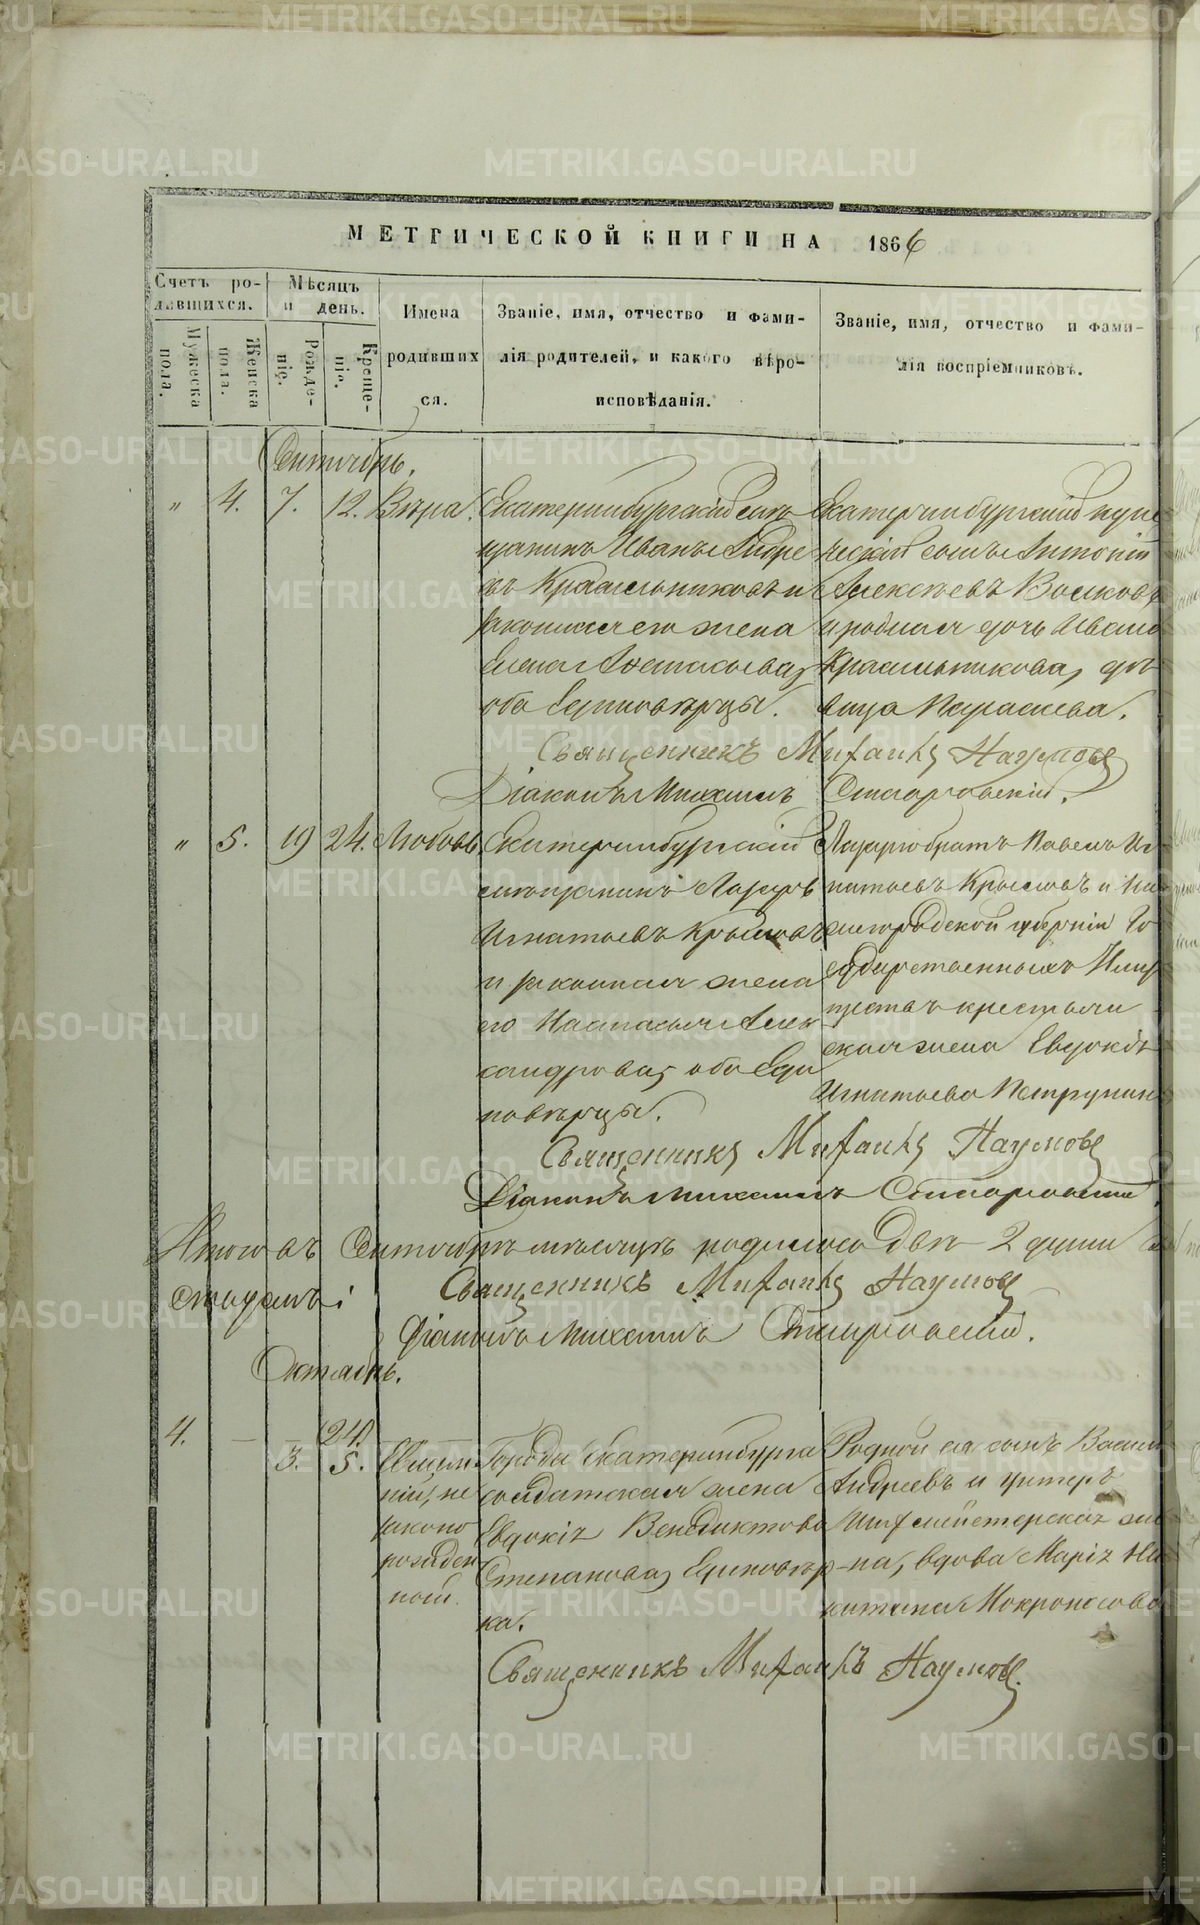 МЕТРИЧЕСКОЙ КНИГИ НА 1866
Счетъ ро-
дившихся.
Мѣсяцъ
и день.
Мужеска
пола.
Женска
пола.
Рожде-
ніе.
Креще-
ніе.
Имена
родивших
ся.
Званіе, имя, отчество и фами-
лія родителей, и какого вѣро-
исповѣданія.
Званіе, имя, отчество и фами-
лія воспріемниковъ.
Сентябрь.
" 4. 7. 12. Вѣра.
Екатеринбургскій мѣ
щанинъ Иванъ Андре
евъ Красильниковъ и
законная его жена
Елена Афанасьева,
оба Единовѣрцы.
Екатеринбургскій купе
ческій сынъ Антоній
Алексѣевъ Волковъ
и родная дочь Ивана
Красильникова, дѣ
вица Параскева.
Священникъ Михаилъ Наумовъ
Діаконъ Михаилъ Сташровскій.
" 5. 19 24. Любовь.
Екатеринбургскій
мѣщанинъ Лазарь
Игнатьевъ Крыловъ
и законная жена
его Настасья Алек
сандрова, оба Еди
новѣрцы.
Лазарю братъ Павелъ Иг
натьевъ Крыловъ и Ни
жегородской губерніи Го
сударственныхъ Иму
ществъ крестьян
ская жена Евдокія
Игнатьева Петрунин
Священникъ Михаилъ Наумовъ
Діаконъ Михаилъ
Итого въ Сентябрѣ мѣсяцѣ родилось Двѣ 2 души
Священникъ Михаилъ Наумовъ
Діаконъ Михаилъ
Октябрь.
4. — 3. 24. 5.
не
законо
рожден
ный.
Города Екатеринбурга
солдатская жена
Евдокія Венедиктова
Степанова, Единовѣр
ка.
Родной ея сынъ Васил
Андреевъ и унтеръ
Шихмейстерская же
на, вдова Марія Ни
китина Мокроносова
Священникъ Михаилъ Наумовъ.
METRIKI.GASO-URAL.RU